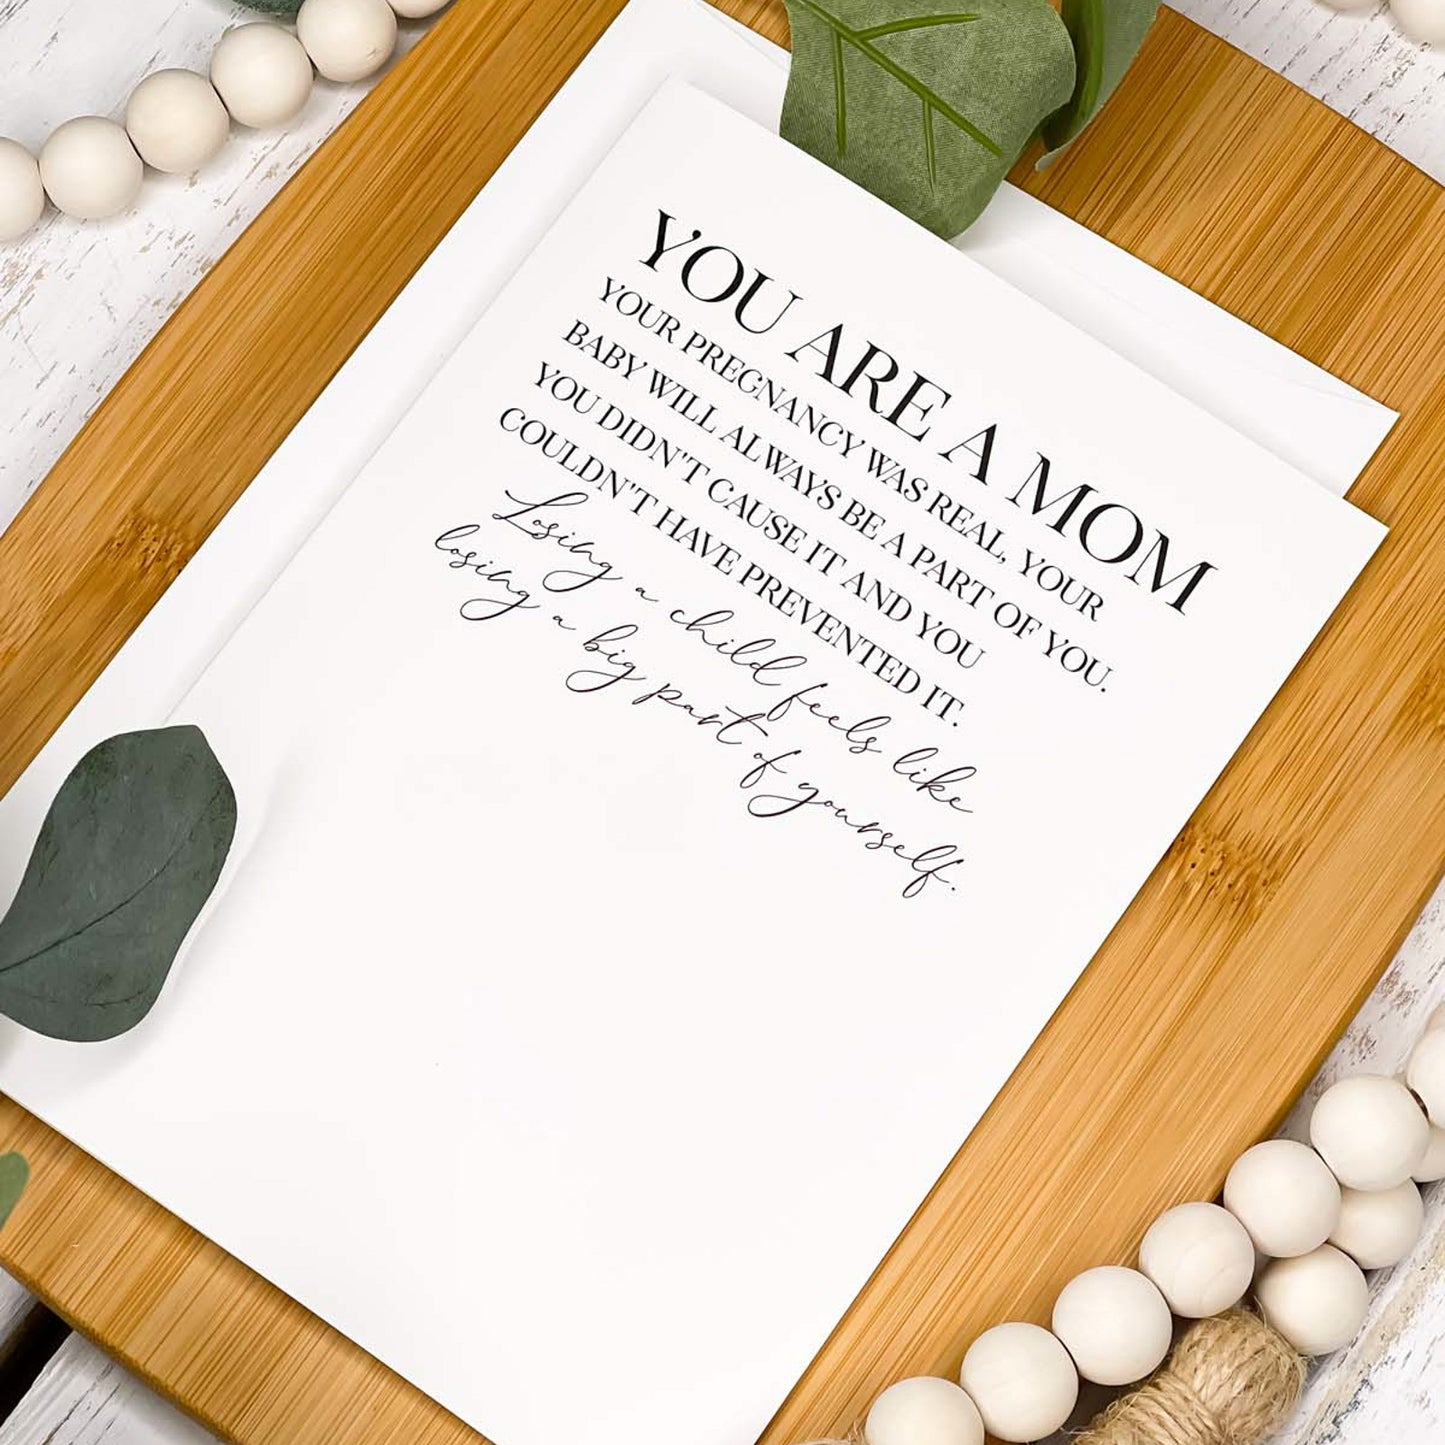 YOU ARE A MOM
YOUR PREGNANCY WAS REAL, YOUR
BABY WILL ALWAYS BE A PART OF YOU.
YOU DIDN'T CAUSE IT AND YOU
COULDN'T HAVE PREVENTED IT.
Losing a child feels like
losing a big part of yourself.